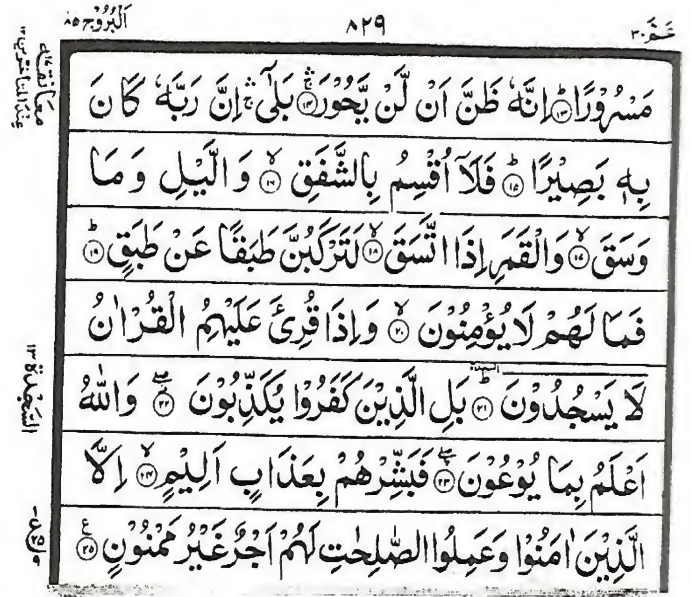 عَمَّ ٣٠ ٨٢٩ اَلْبُرُوْج ٨٥
مَسْرُوْرًا ؕ﴿۱۳﴾ اِنَّهٗ ظَنَّ اَنْ لَّنْ یَّحُوْرَ ۚۛ﴿۱۴﴾ بَلٰۤی ۚۛ اِنَّ رَبَّهٗ كَانَ
بِهٖ بَصِیْرًا ؕ﴿۱۵﴾ فَلَاۤ اُقْسِمُ بِالشَّفَقِ ۙ﴿۱۶﴾ وَ الَّیْلِ وَ مَا
وَسَقَ ۙ﴿۱۷﴾ وَالْقَمَرِ اِذَا اتَّسَقَ ۙ﴿۱۸﴾ لَتَرْكَبُنَّ طَبَقًا عَنْ طَبَقٍ ؕ﴿۱۹﴾
فَمَا لَهُمْ لَا یُؤْمِنُوْنَ ۙ﴿۲۰﴾ وَاِذَا قُرِئَ عَلَیْهِمُ الْقُرْاٰنُ
لَا یَسْجُدُوْنَ ؕ﴿۲۱﴾ بَلِ الَّذِیْنَ كَفَرُوْا یُكَذِّبُوْنَ ﴿۲۲﴾ وَاللّٰهُ
اَعْلَمُ بِمَا یُوْعُوْنَ ﴿۲۳﴾ فَبَشِّرْهُمْ بِعَذَابٍ اَلِیْمٍ ۙ﴿۲۴﴾ اِلَّا
الَّذِیْنَ اٰمَنُوْا وَعَمِلُوا الصّٰلِحٰتِ لَهُمْ اَجْرٌ غَیْرُ مَمْنُوْنٍ ﴿۲۵﴾ ع
معانقه
السَّجْدَة ١٣